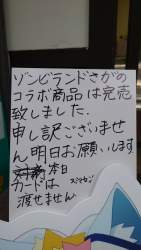 ゾンビランドさがの
コラボ商品は完売
致しました.
申し訳ございませ
ん明日お願いします.
本日
カードは スミマセン
渡せません